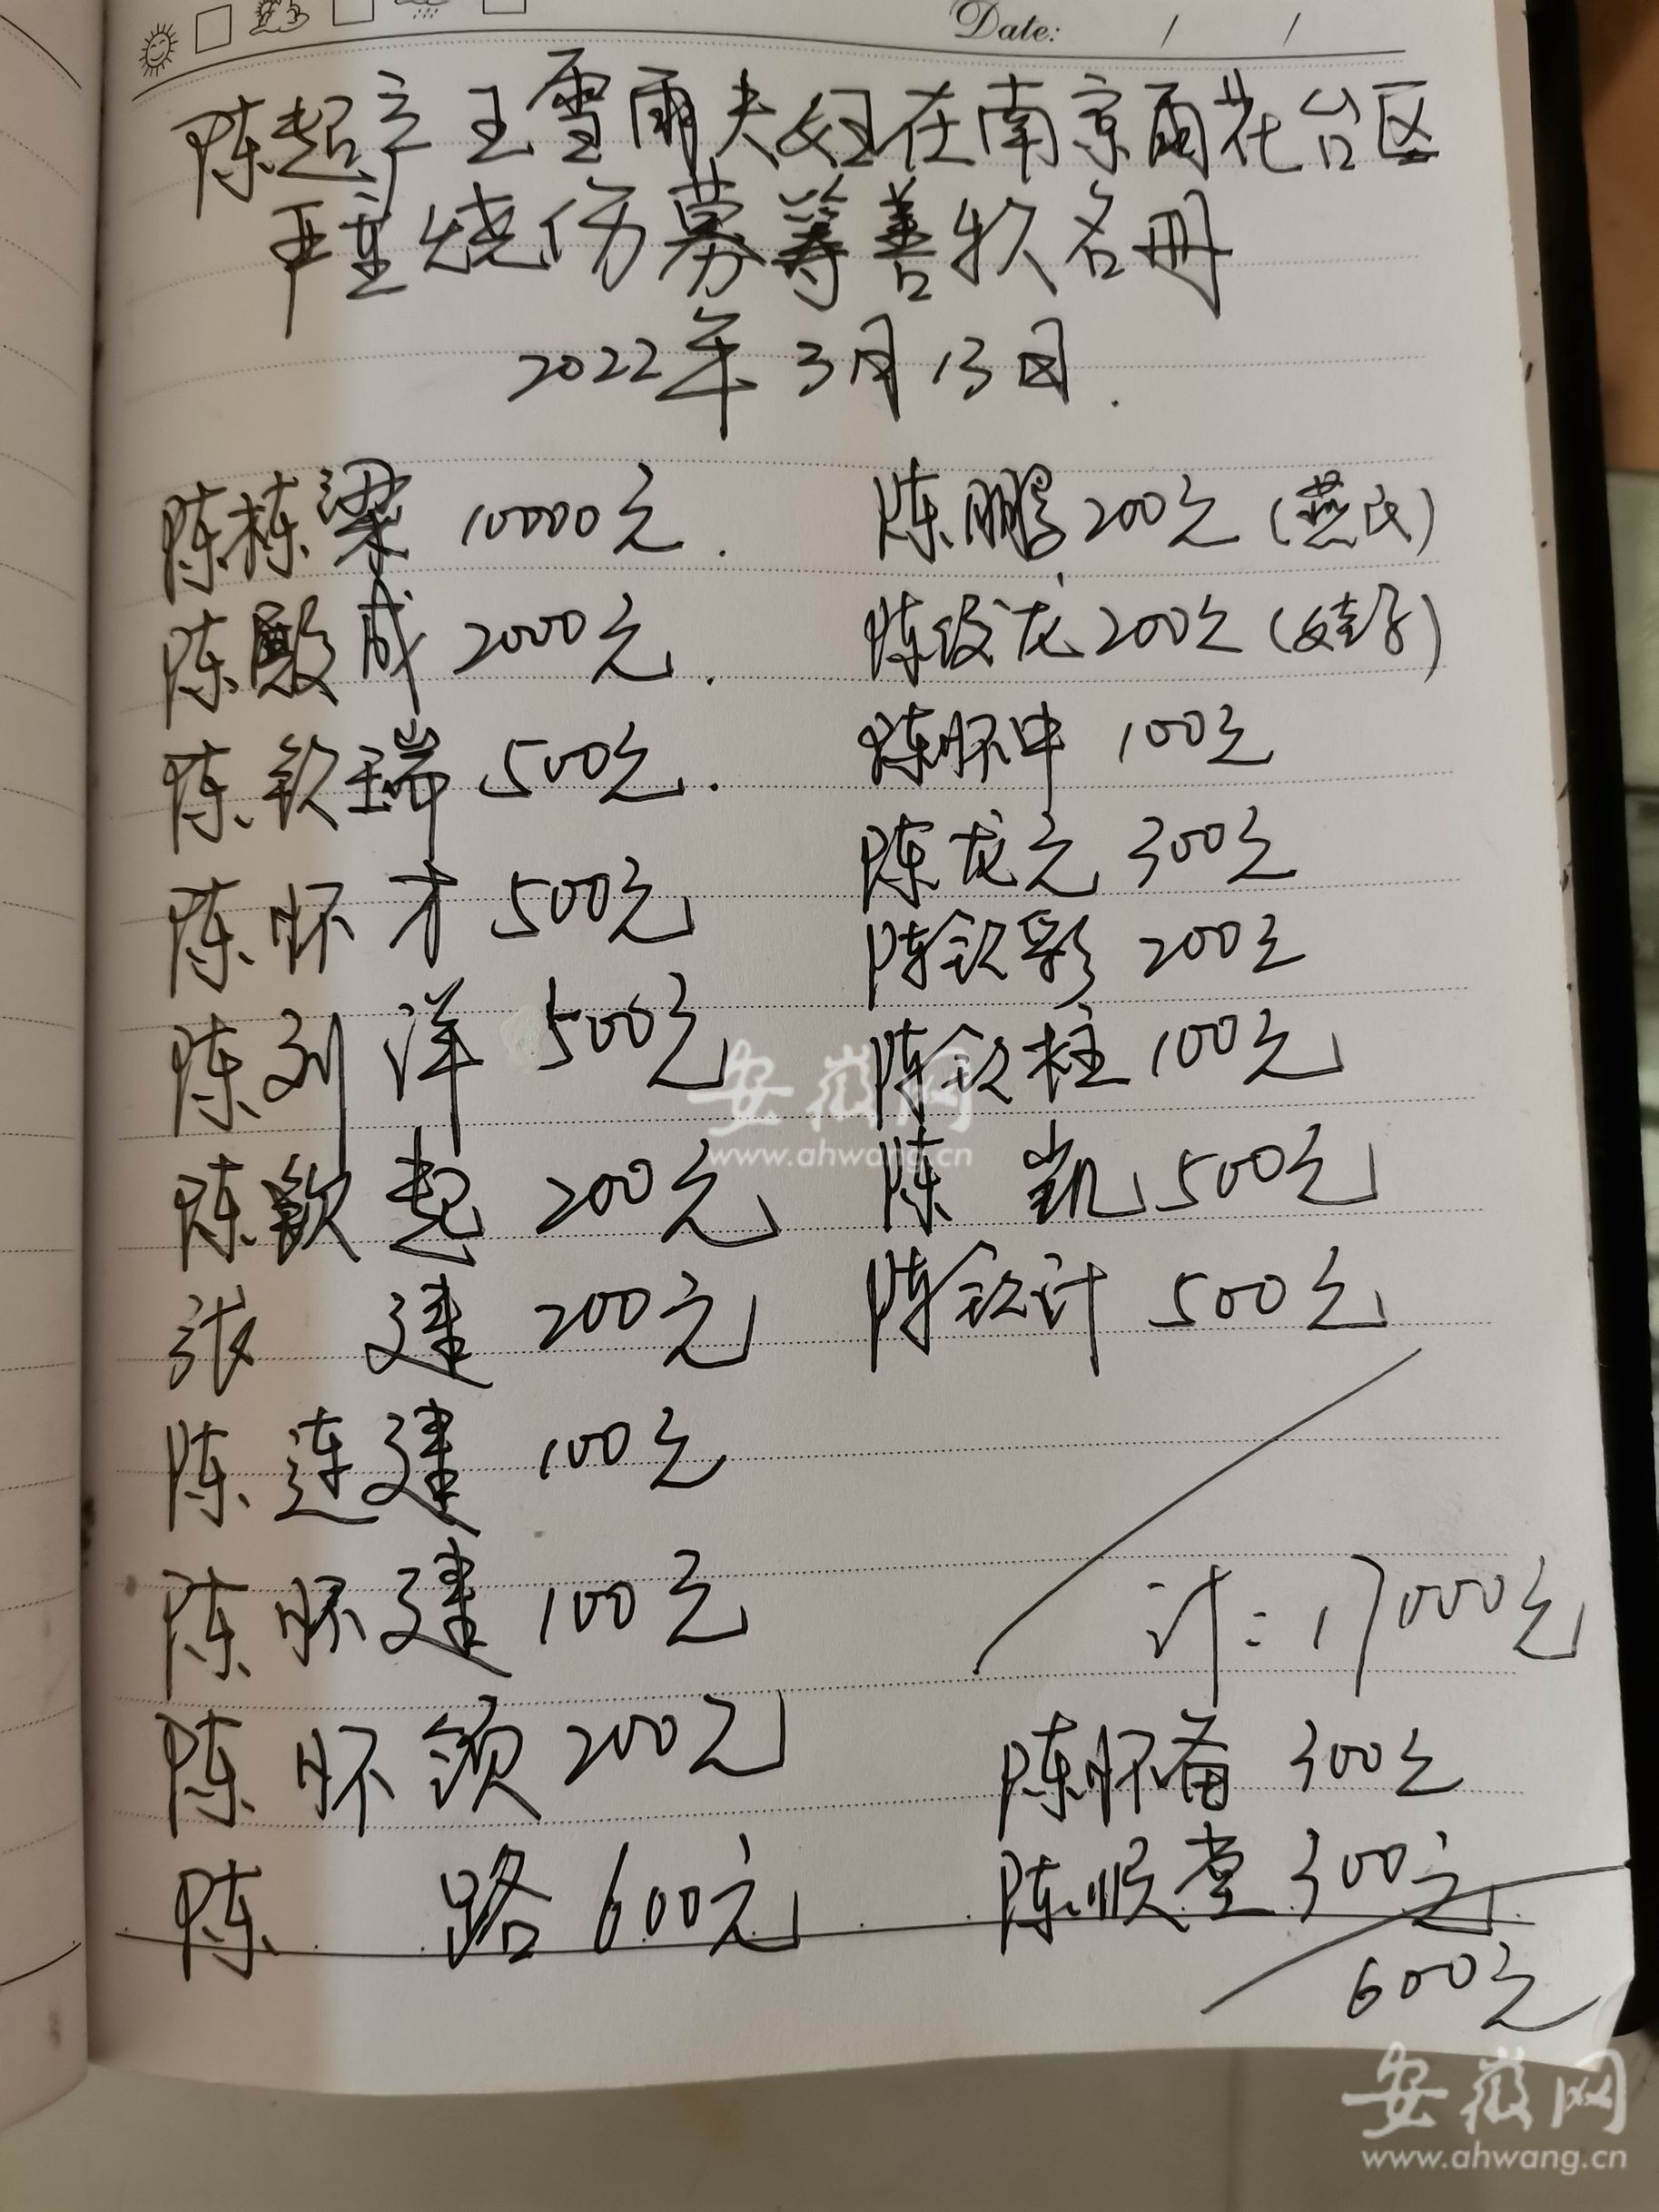 Date: / /
陈起 王雪雨夫妇在南京雨花台区
严重烧伤募筹善款名册
2022年3月13日.
陈栋梁 10000元.
陈殿成 2000元.
陈钦瑞 500元.
陈怀才 500元
陈刘洋 500元
陈钦起 200元
张 建 200元
陈连建 100元
陈怀建 100元
陈怀领 200元
陈 路 600元
陈鹏 200元 (燕氏)
陈俊龙 200元
陈怀中 100元
陈龙元 300元
陈钦影 200元
陈钦柱 100元
陈 凯 500元
陈钦计 500元
计: 17000元
陈怀备 300元
陈顺堂 300元
600元
安徽网
www.ahwang.cn
安徽网
www.ahwang.cn